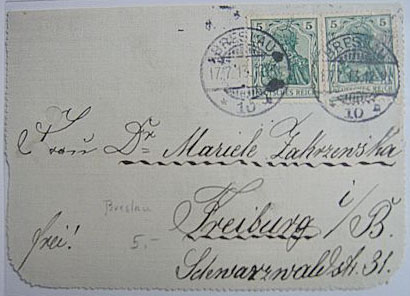 5 5 5
BRESLAU BRESLAU
17.7.13
DEUTSCHES REICH
* 10 10
Frau Dr. Mariele Zakrzewska
Freiburg i/B.
Breslau
frei! 5.-
Schwarzwaldstr. 31.